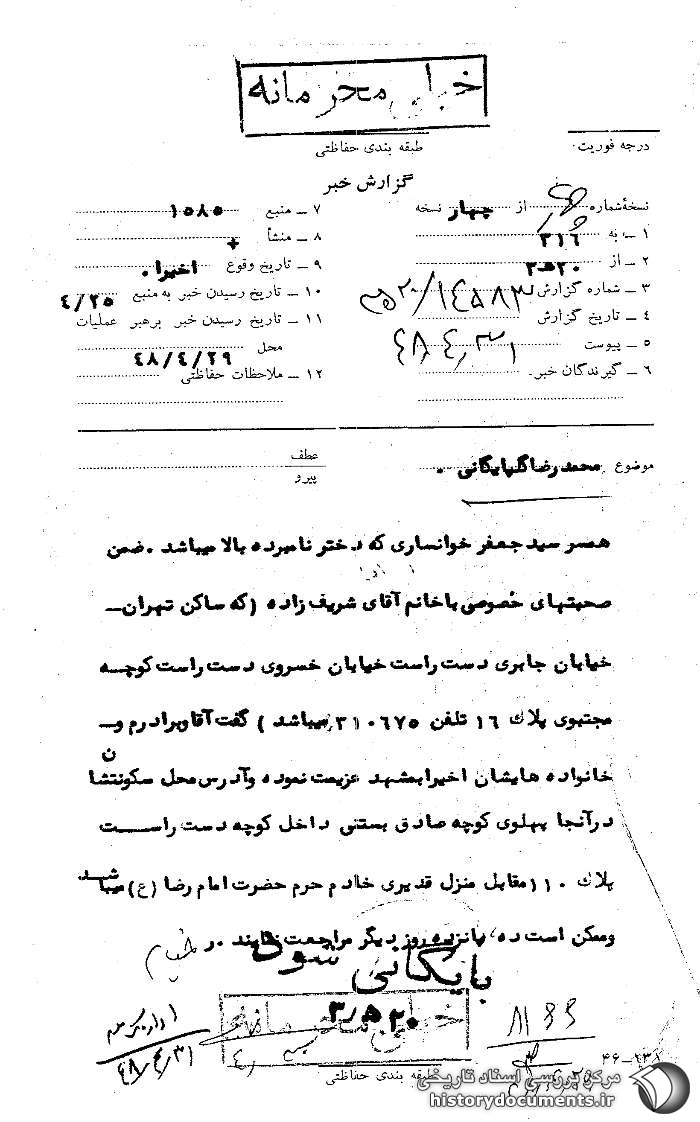 خیلی محرمانه
طبقه بندی حفاظتی
درجه فوریت
گزارش خبر
نسخهٔ شماره از چهار نسخه
۱ ــ به ۳۱۶
۲ ــ از ۲۰ ه‍ ۳
۳ ــ شماره گزارش ۱۴۵۸۳/۲۰ ه‍ ۳
۴ ــ تاریخ گزارش ۴۸٫۴٫۳۱
۵ ــ پیوست
۶ ــ گیرندگان خبر
۷ ــ منبع ۱۵۸۵
۸ ــ منشأ +
۹ ــ تاریخ وقوع اخیرا .
۱۰ ــ تاریخ رسیدن خبر به منبع ۴/۲۵
۱۱ ــ تاریخ رسیدن خبر برهبر عملیات
محل ۴۸/۴/۲۹
۱۲ ــ ملاحظات حفاظتی
موضوع محمد رضا گلپایگانی .
عطف
پیرو
همسر سید جعفر خوانساری که دختر نامبرده بالا میباشد . ضمن
صحبتهای خصوصی با خانم آقای شریف زاده (که ساکن تهران ــ
خیابان جابری دست راست خیابان خسروی دست راست کوچه
مجتبوی پلاک ۱۶ تلفن ۳۱۰۶۷۵ میباشد ) گفت آقا و برادرم و ــ
خانواده هایشان اخیرا بمشهد عزیمت نموده و آدرس محل سکونتشان
در آنجا پهلوی کوچه صادق بستنی داخل کوچه دست راست
پلاک ۱۱۰ مقابل منزل قدیری خادم حرم حضرت امام رضا (ع) میباشد
و ممکن است ده، پانزده روز دیگر مراجعت نمایند . ر
بایگانی شود
خیلی محرمانه
۲۰ ه‍ ۳
طبقه بندی حفاظتی
۴۸/۴/۳۱
مرکز بررسی اسناد تاریخی
historydocuments.ir